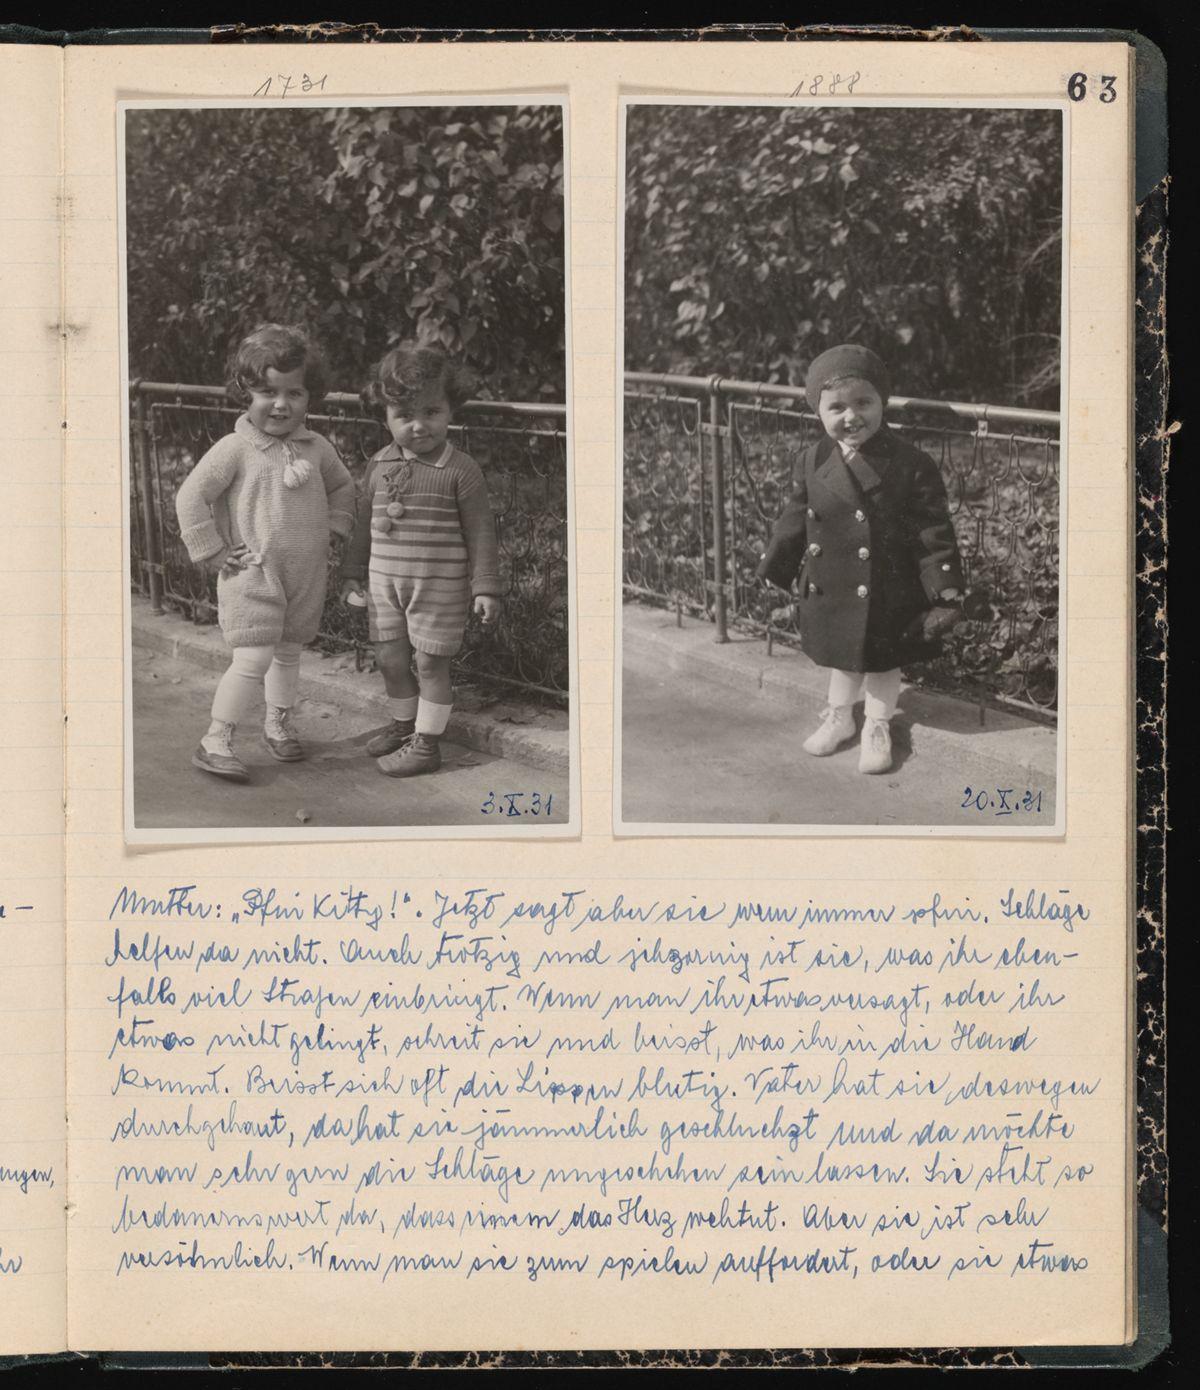 1731
1888
63
3.X.31
20.X.31
Mutter: „Pfui Kitty!“. Jetzt sagt aber sie wem immer pfui. Schläge
helfen da nicht. Auch trotzig und jehzornig ist sie, was ihr eben-
falls viel Strafen einbringt. Wenn man ihr etwas versagt, oder ihr
etwas nicht gelingt, schreit sie und beisst, was ihr in die Hand
kommt. Beisst sich oft die Lippen blutig. Vater hat sie deswegen
durchgehaut, da hat sie jämmerlich geschluchzt und da möchte
man sehr gern die Schläge ungeschehen sein lassen. Sie steht so
bedauernswert da, dass einem das Herz wehtut. Aber sie ist sehr
versöhnlich. Wenn man sie zum spielen auffordert, oder sie etwas
ungen,